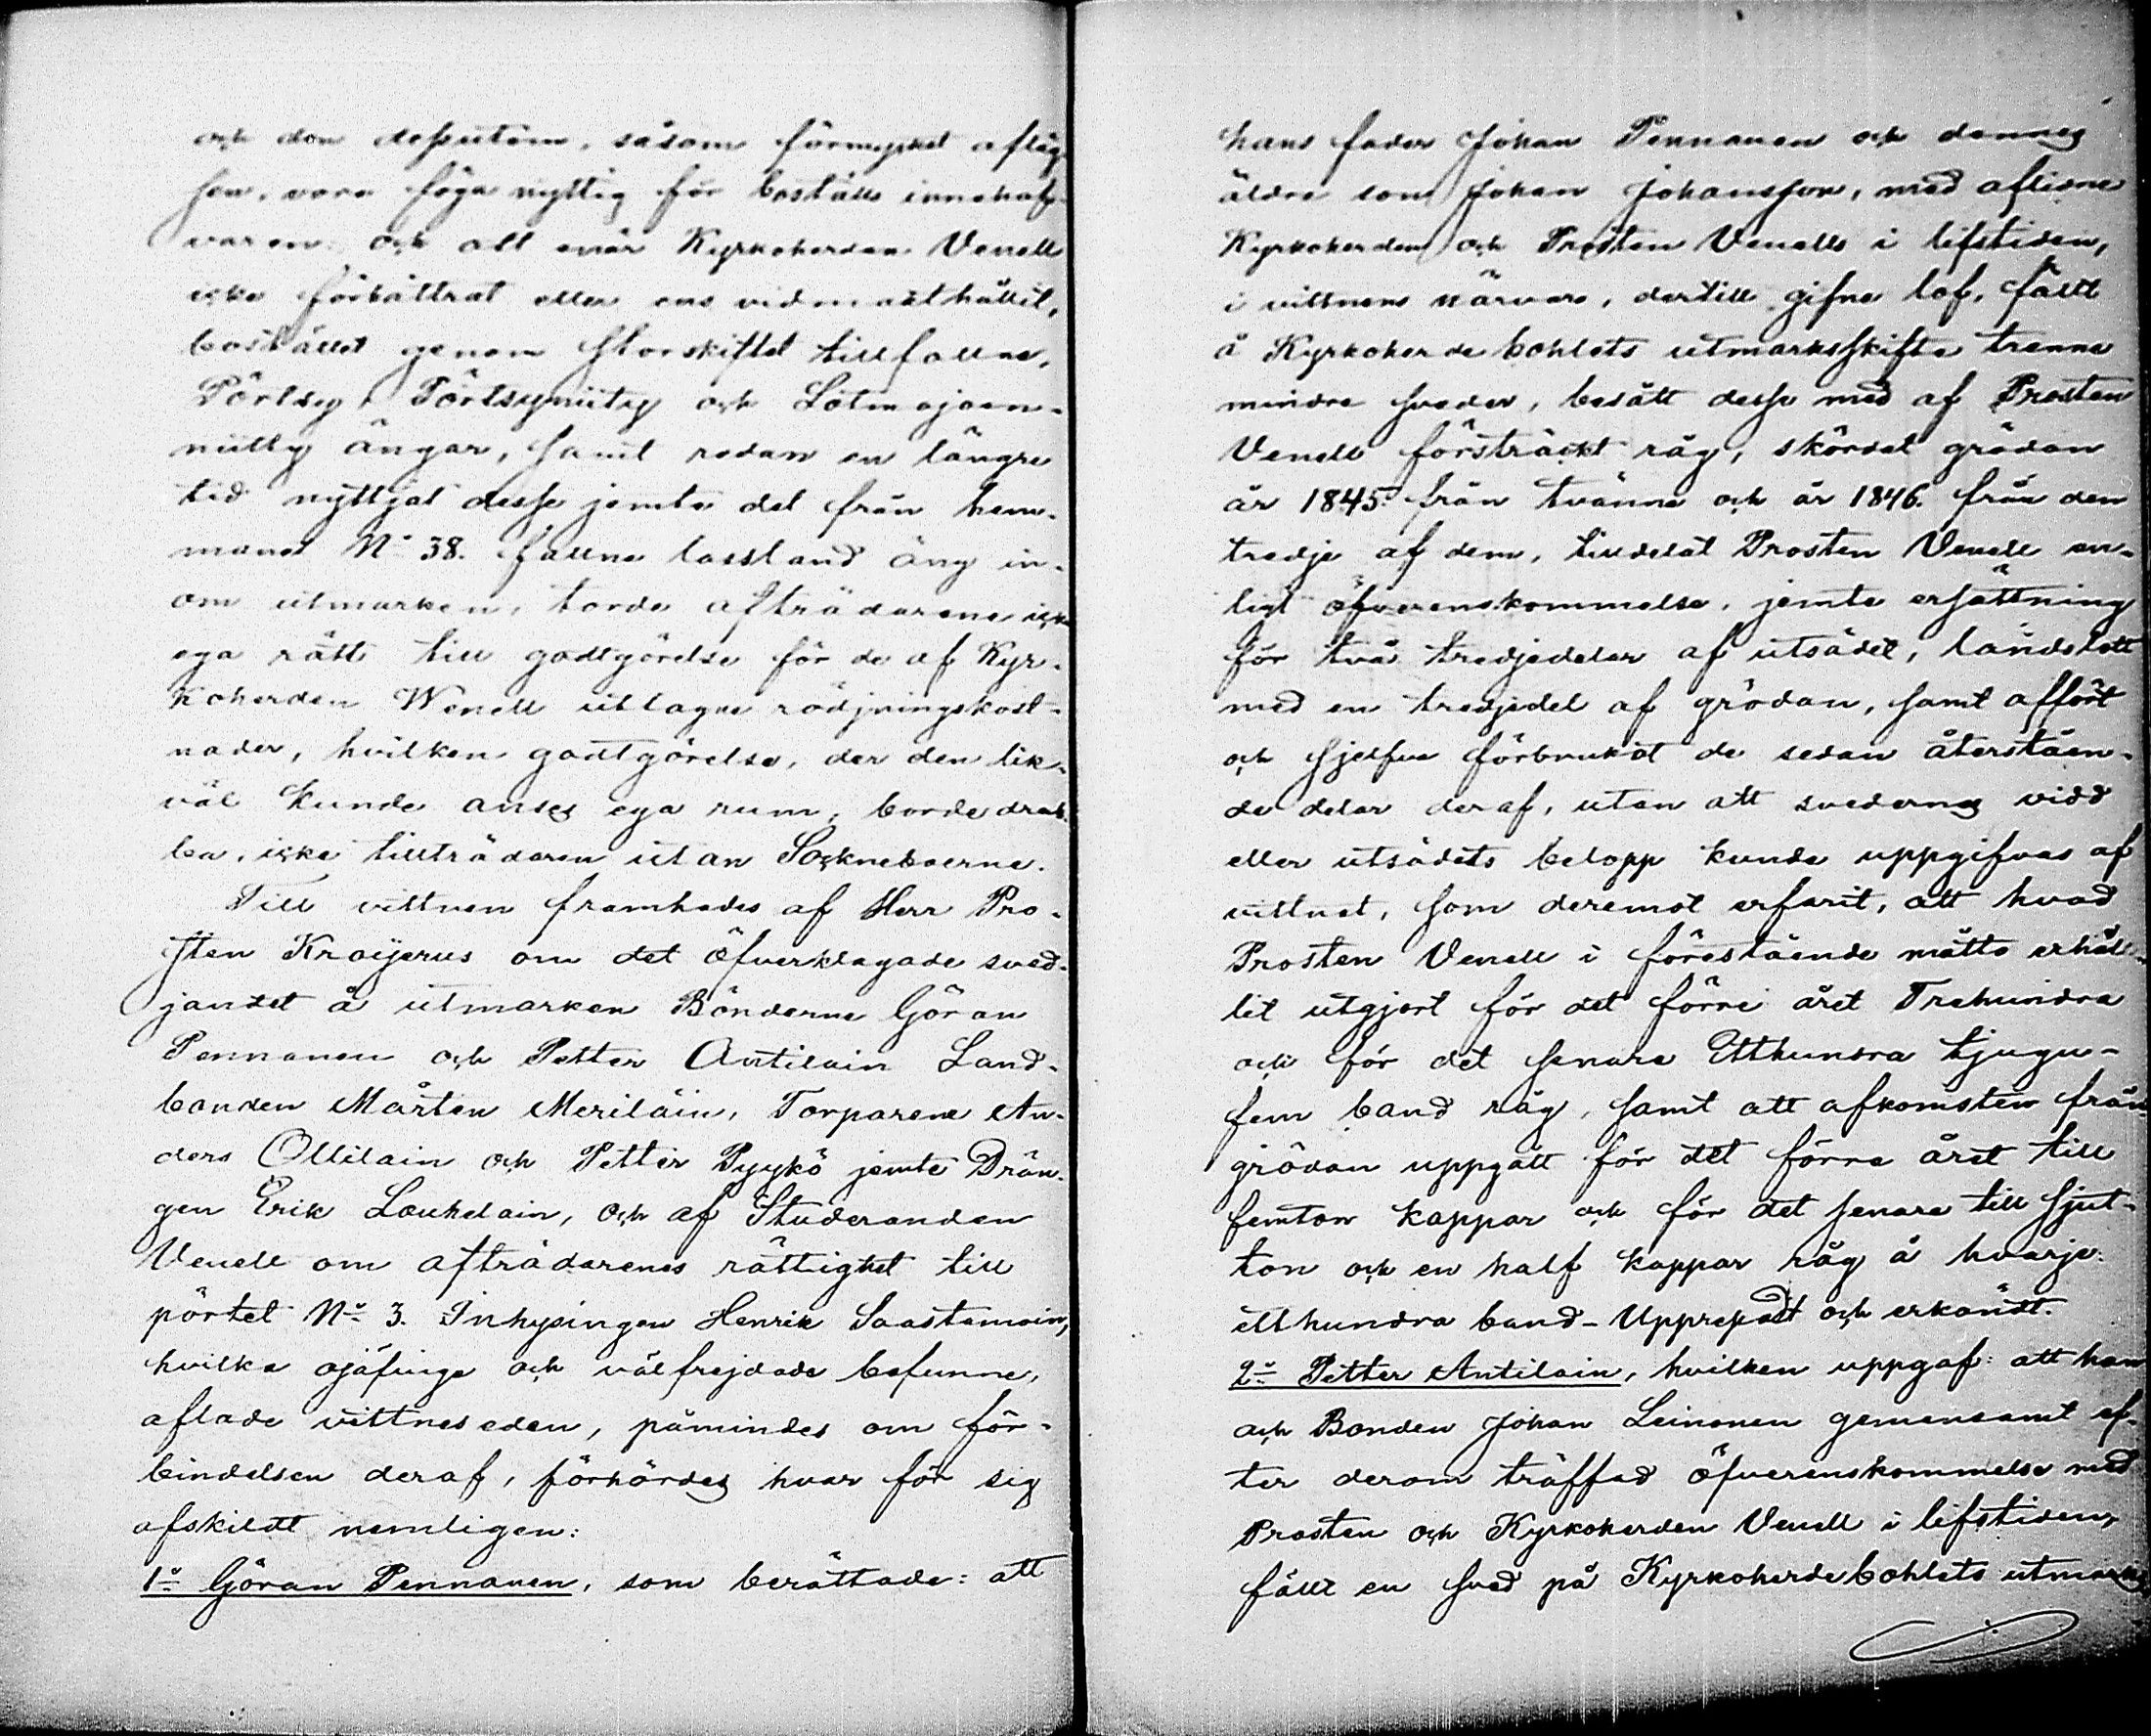 och den dessutom, såsom förmycket afläg
sen, vore föga nyttig för boställs innehaf-
varen, och att enär Kyrkoherden Venell
icke förbättrat eller ens vidmakthållit,
bostället genom storskiftet tillfallne,
Pörtsy, Pörtsyniity och
niitty ängar, samt redan en längre
tid nyttjat desse jemte det från hem-
manet No 38. fallne lassland äng in-
om utmarken, torde afträdarene icke
ega rätt till godtgörelse för de af Kyr-
koherden Wenell uttagne rödjningskost-
nader, hvilken godtgörelse, der den lik-
väl kunde anses ega rum, borde drab-
ba, icke tillträdaren utan Sockneboerne.
Till vittnen framhades af Herr Pro-
sten Kraijerus om det öfverklagade sved-
jandet å utmarken Bönderne Göran
Pennanen och Petter Antilain Land-
bonden Mårten Meriläin, Torparene An-
ders Ollilain och Petter Pyykö jemte Drän-
gen Erik Loukelain, och af Studeranden
Venell om afträdarenes rättighet till
pörtet No 3. Inhysingen Henrik Saastamoin,
hvilka ojäfvige och välfrejdade befunne,
aflade vittneseden, påmindes om för-
bindelsen deraf, förhördes hvar för sig
afskildt nemligen:
1o Göran Pennanen, som berättade: att
hans fader Johan Pennanen och dennes
äldre son Johan Johansson, med aflidne
Kyrkoherden och Prosten Venells i lifstiden,
i vittnens närvaro, dertill gifne lof, fällt
å Kyrkoherdebohlets utmarksskifte trenne
mindre svedor, besått desse med af Prosten
Venell försträckt råg, skördat grödan
år 1845 från tvänne och år 1846. från den
tredje af dem, tilldelat Prosten Venell en-
ligt öfverenskommelse, jemte ersättning
för två tredjedelar af utsädet, landslott
med en tredjedel af grödan, samt affört
och sjelfve förbrukat de sedan återståen-
de delar deraf, utan att svedernes vidd
eller utsädets belopp kunde uppgifvas af
vittnet, som deremot erfarit, att hvad
Prosten Venell i förestående måtto erhål-
lit utgjort för det förre året Trehundra
och för det senare Etthundra tjugu-
fem band råg, samt att afkomsten från
grödan uppgått för det förra året till
femton kappar och för det senare till sjut-
ton och en half kappar råg å hvarje
etthundra band - Upprepadt och erkändt.
2o Petter Antilain, hvilken uppgaf: att han
och Bonden Johan Leinonen gemensamt ef-
ter derom träffad öfverenskommelse med
Prosten och Kyrkoherden Venell i lifstiden,
fällt en sved på Kyrkoherdebohlets utmarks